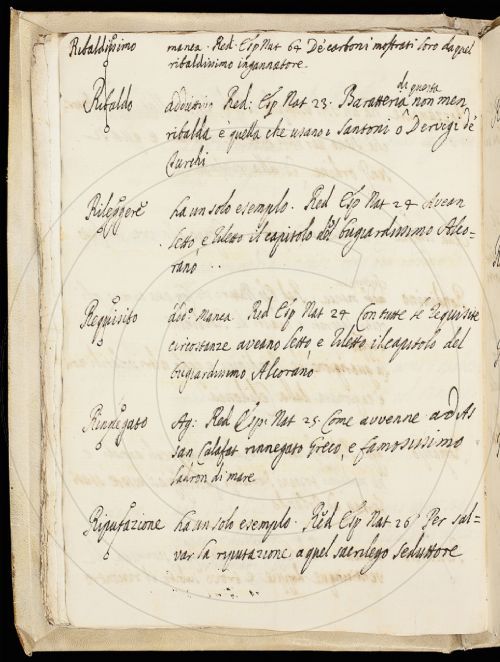 Ribaldissimo manca. Red. Esp Nat 64 De carboni mostrati loro da quel
ribaldissimo ingannatore.
Ribaldo addiettivo Red: Esp Nat 23. Baratteria di questa non men
ribalda è quella che usano i Santoni ò Dervigi de'
Turchi
Rileggere ha un solo esempio. Red Esp Nat 24 avean
letto, e riletto il capitolo del bugiardissimo Alco=
rano
Requisito add.º manca. Red Esp Nat 24 Con tutte le requisite
circostanze aveano letto e riletto il capitolo del
bugiardissimo Alcorano
Rinnegato Ag: Red Esp: Nat 25. Come avvenne ad As
san Calafat rinnegato Greco, e famosissimo
ladron di mare
Riputazione ha un solo esempio. Red Esp Nat 26 Per sal=
var la riputazione a quel sacrilego seduttore